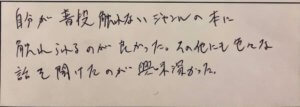 自分が普段触れないジャンルの本に
触れられるのが良かった。その他にも色々な
話を聞けたのが興味深かった。